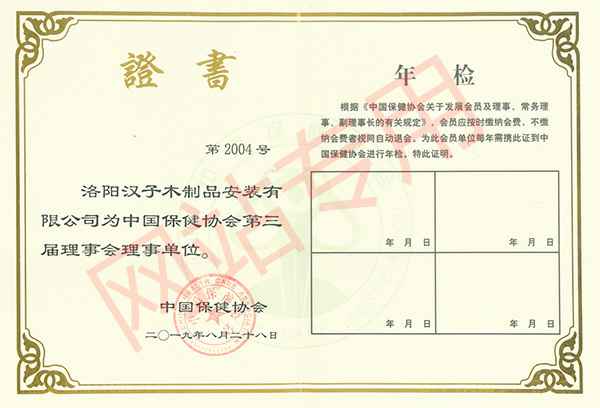 證書
第2004号
洛阳汉子木制品安装有
限公司为中国保健协会第三
届理事会理事单位。
中国保健协会
二〇一九年八月二十八日
年检
根据《中国保健协会关于发展会员及理事、常务理
事、副理事长的有关规定》，会员应按时缴纳会费，不缴
纳会费者视同自动退会。为此会员单位每年需携此证到中
国保健协会进行年检。特此证明。
年 月 日
年 月 日
年 月 日
年 月 日
网站专用